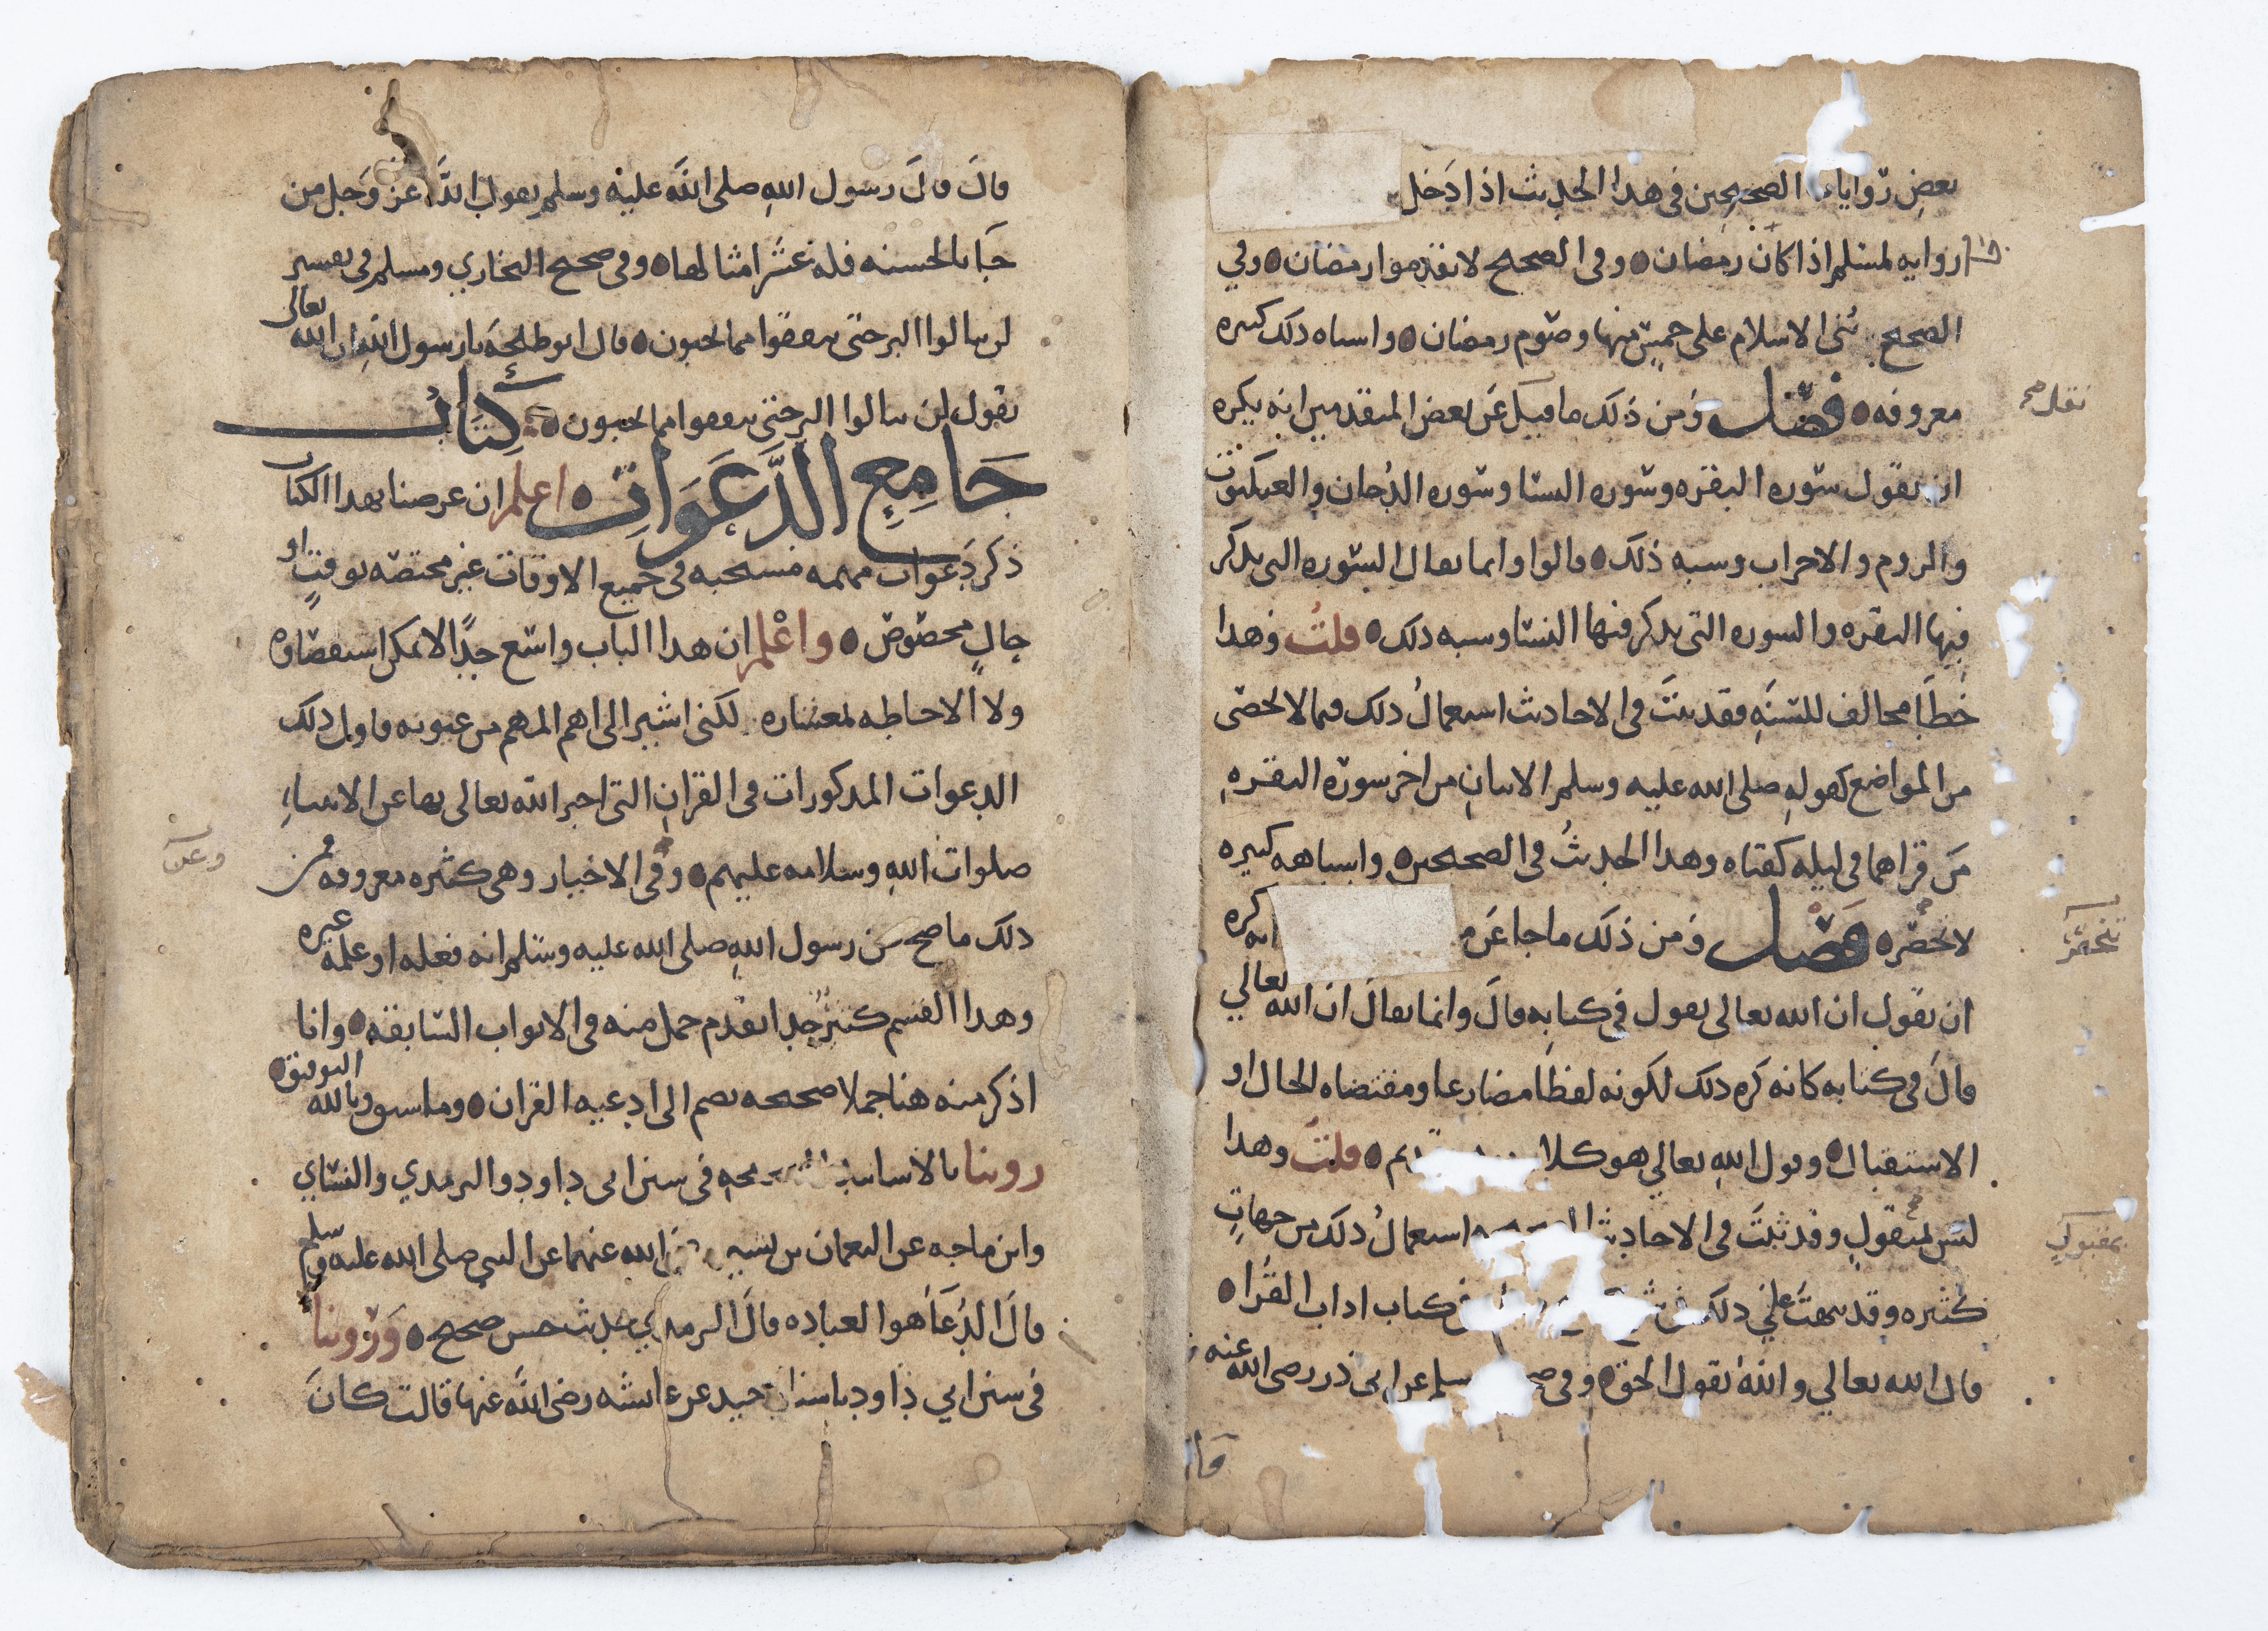 بعض روايات الصحيحين في هذا الحديث اذا دخل
روايه لمسلم اذا كان رمضان وفي الصحيح لا تقدموا رمضان وفي
الصحيح بني الاسلام على خمس منها وصوم رمضان واشباه ذلك كثيره
معروفه فصل ومن ذلك ما قيل عن بعض المتقدمين انه يكره
ان يقول سوره البقره وسوره النسا وسوره الدخان والعنكبوت
والروم والاحزاب وشبه ذلك قالوا وانما يقال السوره التي يذكر
فيها البقره والسوره التي يذكر فيها النسا وشبه ذلك قلت وهذا
خطأ مخالف للسنه فقد ثبت في الاحاديث استعمال ذلك فيما لا يحصى
من المواضع كقوله صلى الله عليه وسلم الايتان من اخر سوره البقره
من قراهما في ليله كفتاه وهذا الحديث في الصحيحين واشباهه كثيره
لا تحصر فصل ومن ذلك ما جا عن م انه كره
ان يقول ان الله تعالى يقول في كتابه قال وانما يقال ان الله تعالى
قال في كتابه كانه كره ذلك لكونه لفظا مضارعا ومقتضاه الحال او
الاستقبال وقول الله تعالى هو كلا يم قلت وهذا
ليس بمقبول وقد ثبت في الاحاديث استعمال ذلك من جهات
كثيره وقد نبهت على ذلك في كتاب اداب القرا
قال الله تعالى والله يقول الحق وفي سلم عن ابي ذر رضي الله عنه
قال
قال قال رسول الله صلى الله عليه وسلم يقول الله عز وجل من
جا بالحسنه فله عشر امثالها وفي صحيح البخاري ومسلم في تفسير
لن تنالوا البر حتى تنفقوا مما تحبون قال ابو طلحه يا رسول الله ان الله تعالى
يقول لن تنالوا البر حتى تنفقوا مما تحبون كتاب
جامع الدعوات اعلم ان غرضنا بهذا الكتاب
ذكر دعوات مهمه مستحبه في جميع الاوقات غير مختصه بوقت او
حال مخصوص واعلم ان هذا الباب واسع جدا لا يمكن استقصاوه
ولا الاحاطه بمعشاره لكني اشير الى اهم المهم من عيونه فاول ذلك
الدعوات المذكورات في القران التي اخبر الله تعالى بها عن الانبياء
صلوات الله وسلامه عليهم وفي الاخيار وهي كثيره معروفه ومن
ذلك ما صح عن رسول الله صلى الله عليه وسلم انه فعله او علمه غيره
وهذا القسم كثير جدا تقدم جمل منه في الابواب السابقه وانا
اذكر منه هنا جملا صحيحه تضم الى ادعيه القران وما سبق وبالله التوفيق
روينا بالاسانيد الصحيحه في سنن ابي داود والترمذي والنساي
وابن ماجه عن النعمان بن بشير رضي الله عنهما عن النبي صلى الله عليه وسلم
قال الدعا هو العباده قال الترمذي حديث حسن صحيح وروينا
في سنن ابي داود باسناد جيد عن عايشه رضي الله عنها قالت كان